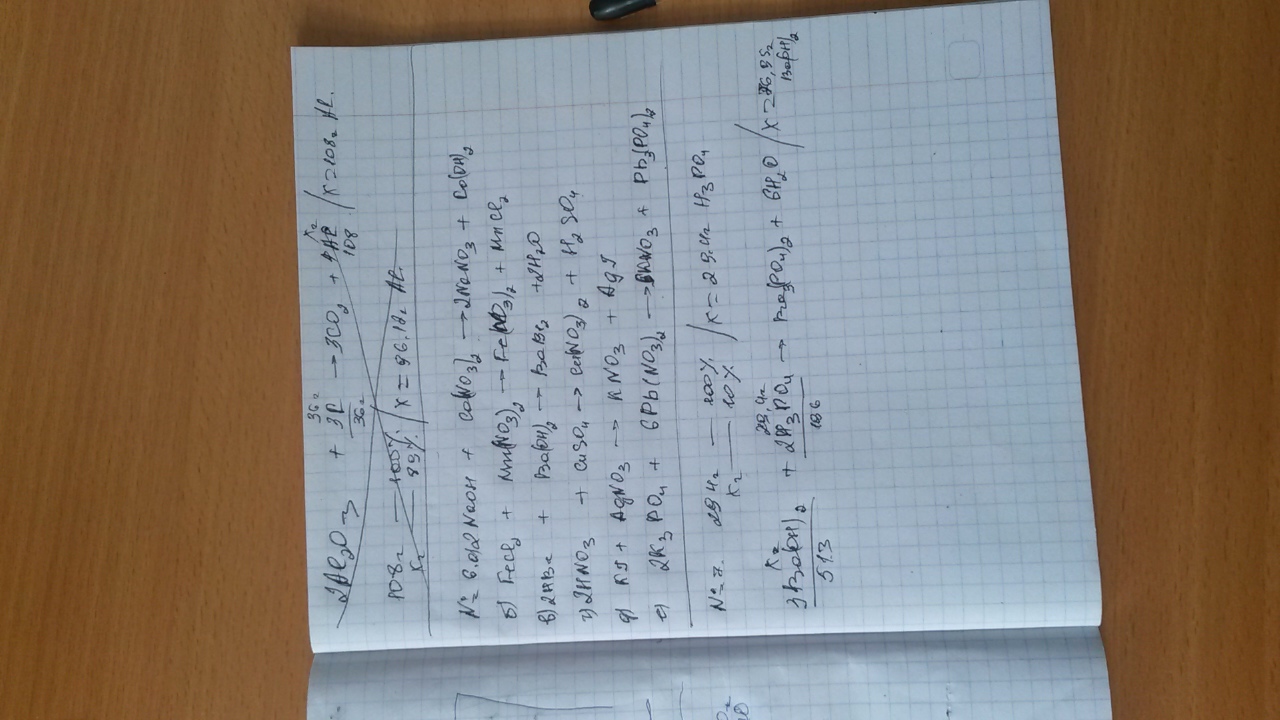 2Al2O3 + 3C → 3CO2 + 4Al / x=108г Al.
36г xг
36г 108
108г — 100%
xг — 89% / x = 96.12г Al.
№ 6. а) 2NaOH + Co(NO3)2 → 2NaNO3 + Co(OH)2
б) FeCl2 + Mn(NO3)2 → Fe(NO3)2 + MnCl2
в) 2HBr + Ba(OH)2 → BaBr2 + 2H2O
г) 2HNO3 + CuSO4 → Cu(NO3)2 + H2SO4
д) KI + AgNO3 → KNO3 + AgI
е) 2K3PO4 + 6Pb(NO3)2 → 6KNO3 + Pb3(PO4)2
№ 7. 294г — 100%
xг — 10% / x = 29.4г H3PO4
xг 29,4г
3Ba(OH)2 + 2H3PO4 → Ba3(PO4)2 + 6H2O / x = 76,95г Ba(OH)2
513 196